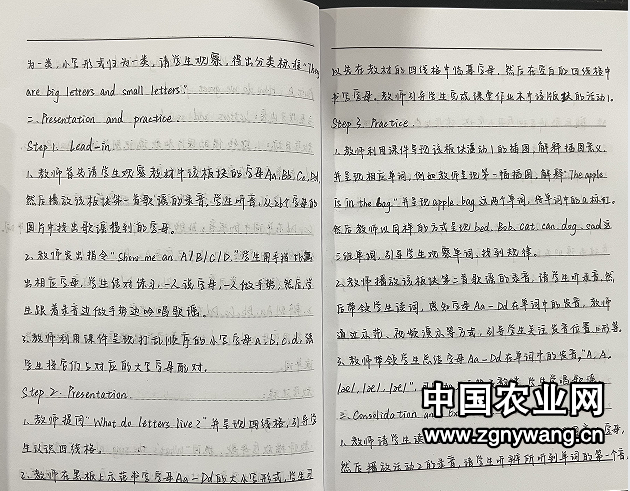 为一类，小写形式归为一类，请学生观察，得出分类标准"They
are big letters and small letters."
二. Presentation and practice.
Step 1. Lead-in
1. 教师首先请学生观察教材中该板块的字母Aa, Bb, Cc, Dd,
然后播放该板块第一首歌谣的录音，学生听音，从26个字母的
图片中找出歌谣提到的字母。
2. 教师发出指令"Show me an A/B/C/D."学生用手指
出相应字母，学生结对练习，一人说字母，一人做手势，然后学
生跟着录音边做手势边吟唱歌谣。
3. 教师利用课件呈现打乱顺序的小写字母a, b, c, d, 请
学生将它们与对应的大写字母配对。
Step 2. Presentation.
1. 教师提问"What do letters live?"并呈现四线格，引导学
生认识四线格。
2. 教师在黑板上示范书写字母Aa-Dd的大小写形式，学生
以先在教材的四线格中临摹字母，然后在空白的四线格中
书写字母。教师引导学生完成课堂作业本中该版块的活动1。
Step 3. Practice.
1. 教师利用课件呈现该板块活动1的插图，解释插图意义，
并呈现相应单词，例如教师呈现第一幅插图，解释"The apple
is in the bag."并呈现apple, bag这两个单词，将单词中的a标红。
然后教师以同样的方式呈现bed, Bob, cat, can, dog, sad这
三组单词，引导学生观察单词，找到规律。
2. 教师播放该板块第二首歌谣的录音，请学生听录音，然
后带领学生读词，感知字母Aa-Dd在单词中的发音，教师
通过示范、视频演示等方式，引导学生关注发音位置
3. 教师带领学生总结字母Aa-Dd在单词中的发音，"A, A,
/æ/, /æ/, /æ/",
三. Consolidation and
1. 教师请学生读
然后播放活动2的录音，请学生听辨所听到单词的第一个音，
中国农业网
www.zgnywang.cn